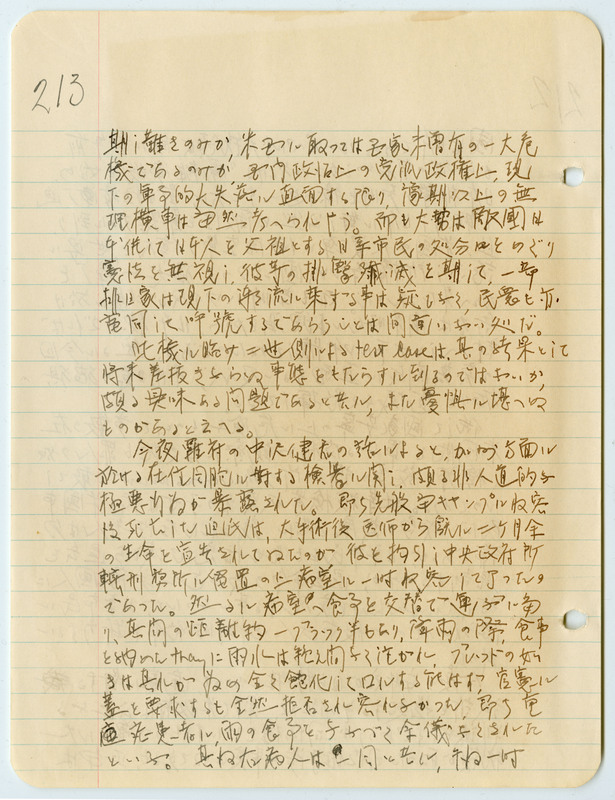 213
期し難きのみか、米国に取っては国家未曽有の一大危
機であるのみか、国内政治上の党派政権上、現
下の軍事的大失敗に直面する限り、予期以上の無
理横車は当然考へられやう。即ち大勢は
を祖とする日系市民の処分をめぐり
憲法を無視し、彼等の排撃殲滅を期して、一部
排日家は現下の に乗ずる事は疑もなく、民衆も亦
雷同して呼號するであらうことは間違いない処だ。
此機に臨み二世側による test case は、其の結果として
将来差抜きならぬ事態をもたらすに到るのではないか、
頗る興味ある問題であると共に、また憂惧に堪へぬ
ものがあると云へる。
今夜羅府の中沢健君の話によると、加州方面に
於ける在住同胞に対する検挙に関し、頗る非人道的な
極悪行為が暴露された。即ち先般 キャンプに収容
後死亡した 氏は、大手術後医師から既に二ヶ月余
の生命と宣告されてゐたのが 彼を拘引し中央政府所
轄刑務所に留置の上病室に一時収容して了った
であった。然るに病室へ食事を交替で運ぶに当
り、其間の距離約一ブラック半もあり、降雨の際、食事
を納めた tray に雨水は絶え間なく注がれ、ブレッドの如
きは其れが為め全く飽化して口にする能はず 官憲に
蓋を要求するも全然拒否され容れなかった、即ち重
症患者に、雨の食事を 余儀なくされた
といふ。 其ね 病人は 同と共に、 一時